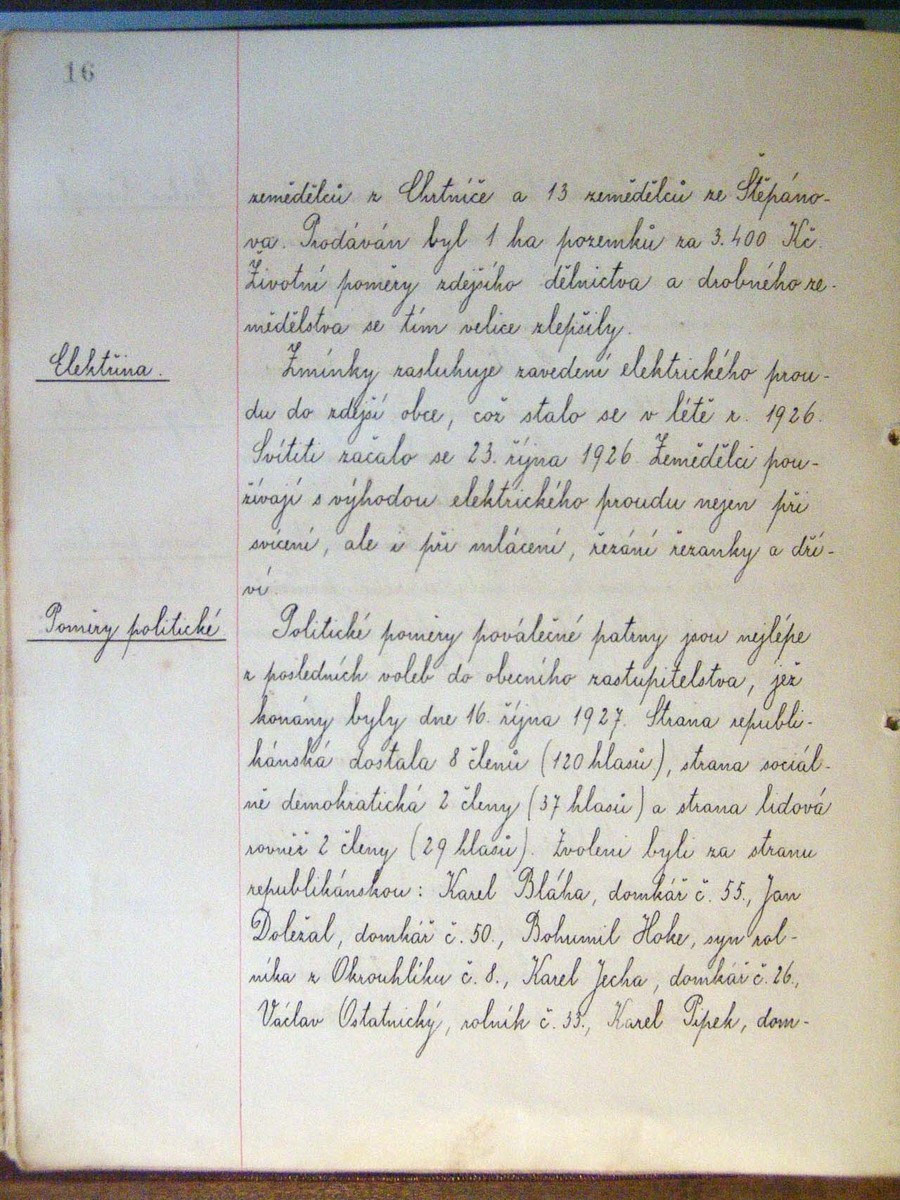 16
zemědělců z Chrtníče a 13 zemědělců ze Štěpáno-
va. Prodáván byl 1 ha pozemků za 3.400 Kč.
Životní poměry zdejšího dělnictva a drobného ze-
mědělstva se tím velice zlepšily.
Elektřina.
Zmínky zasluhuje zavedení elektrického prou-
du do zdejší obce, což stalo se v létě r. 1926.
Svítiti začalo se 23. října 1926. Zemědělci pou-
žívají s výhodou elektrického proudu nejen při
svícení, ale i při mlácení, řezání řezanky a dří-
ví.
Poměry politické
Politické poměry poválečné patrny jsou nejlépe
z posledních voleb do obecního zastupitelstva, jež
konány byly dne 16. října 1927. Strana republi-
kánská dostala 8 členů (120 hlasů), strana sociál-
ně demokratická 2 členy (37 hlasů) a strana lidová
rovněž 2 členy (29 hlasů). Zvoleni byli za stranu
republikánskou: Karel Bláha, domkář č. 55., Jan
Doležal, domkář č. 50., Bohumil Hoke, syn rol-
níka z Okrouhlíku č. 8., Karel Jecha, domkář č. 26.,
Václav Ostatnický, rolník č. 33., Karel Pipek, dom-